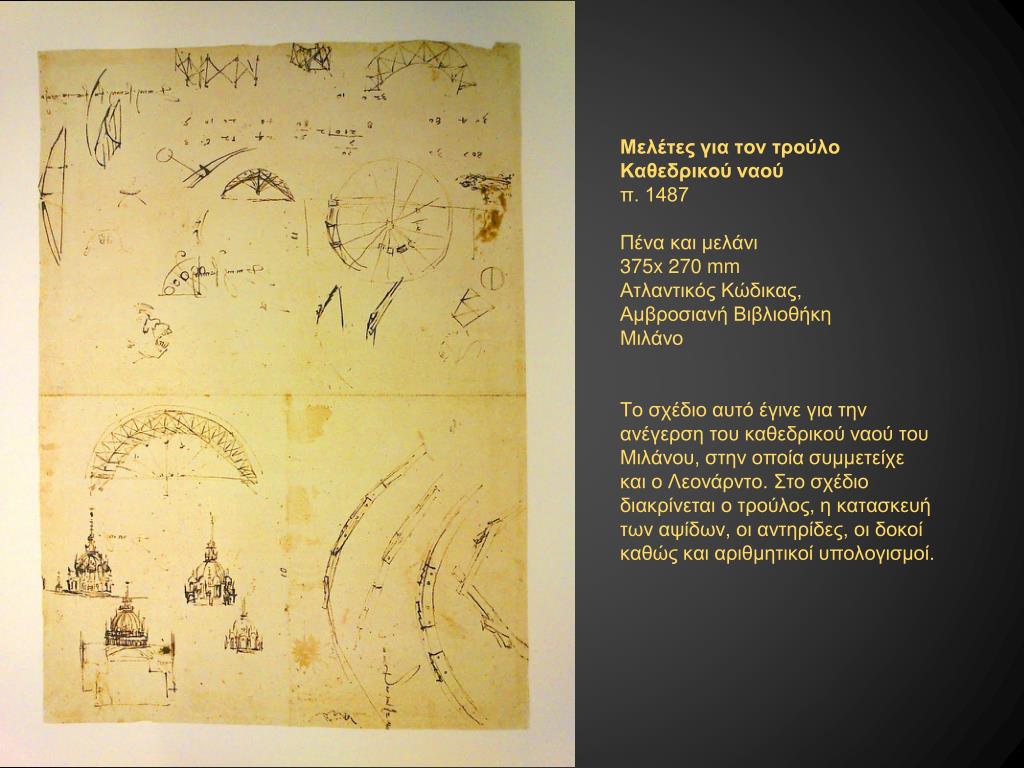 Μελέτες για τον τρούλο
Καθεδρικού ναού
π. 1487
Πένα και μελάνι
375x 270 mm
Ατλαντικός Κώδικας,
Αμβροσιανή Βιβλιοθήκη
Μιλάνο
Το σχέδιο αυτό έγινε για την
ανέγερση του καθεδρικού ναού του
Μιλάνου, στην οποία συμμετείχε
και ο Λεονάρντο. Στο σχέδιο
διακρίνεται ο τρούλος, η κατασκευή
των αψίδων, οι αντηρίδες, οι δοκοί
καθώς και αριθμητικοί υπολογισμοί.